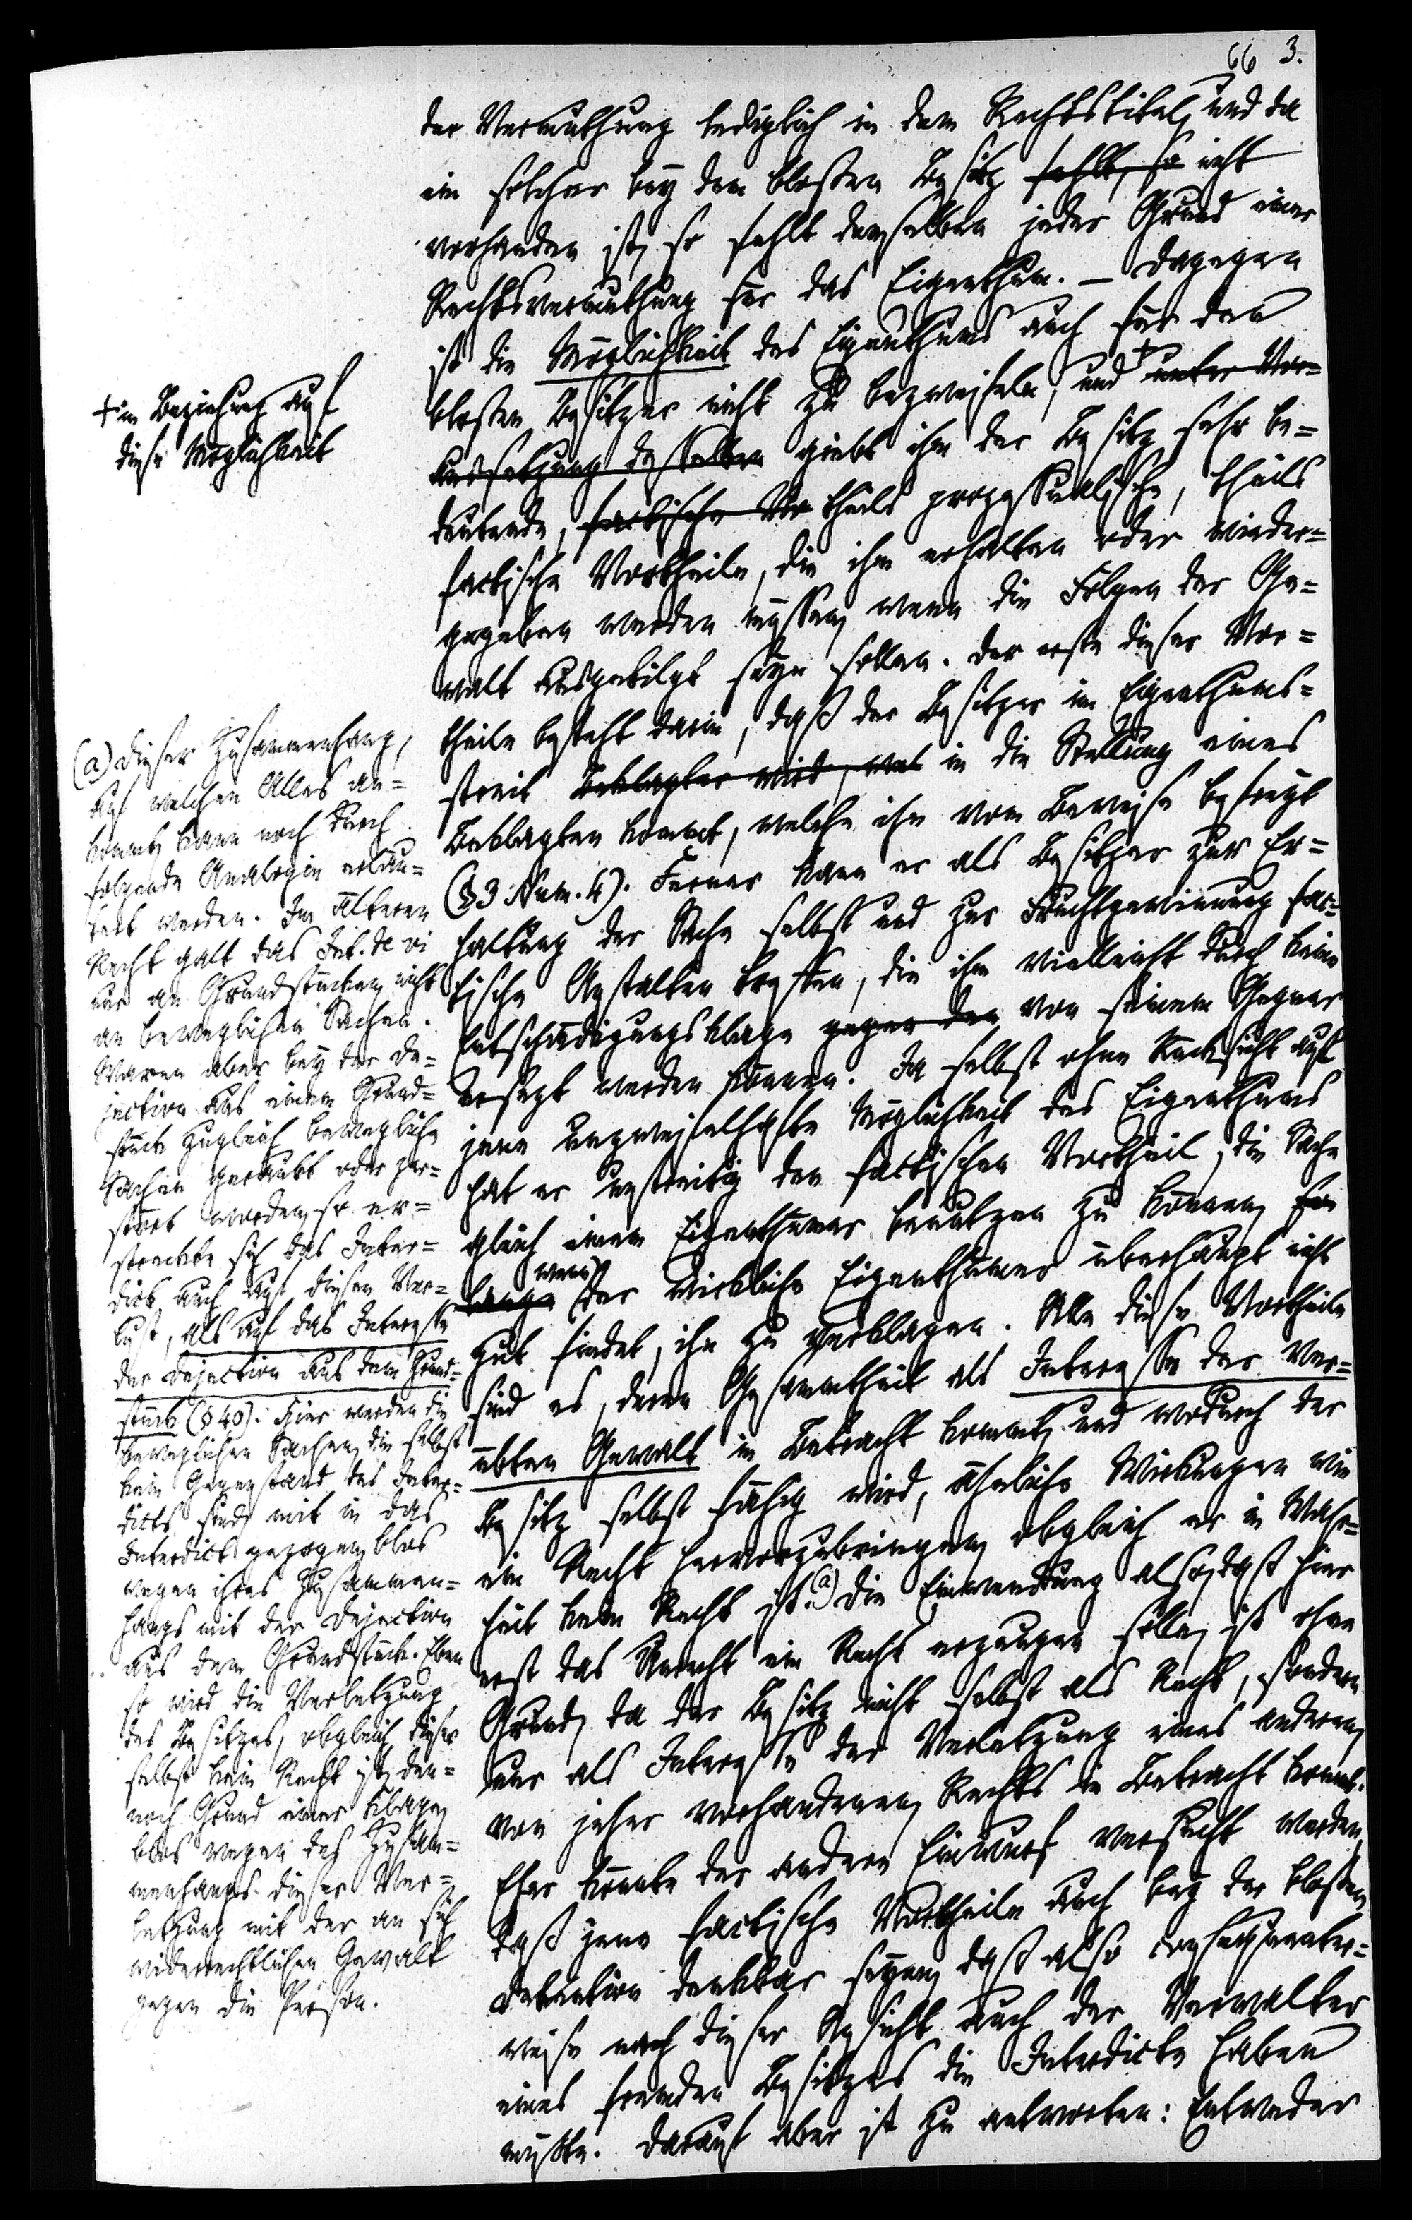 66 3.
der Vermuthung lediglich in dem Rechtstitel, und da
ein solcher bey dem bloßen Besitz fehlt, so nicht
vorhanden ist, so fehlt demselben jeder Grund einer
Rechtsvermuthung für das Eigenthum. — Dagegen
ist die Möglichkeit des Eigenthums auch für den
bloßen Besitzer nicht zu bezweifeln, und + unter Vor=
aussetzung desselben giebt ihm der Besitz sehr be=
deutende, factische Vor theils prozessualische, theils
factische Vortheile, die ihm erhalten oder wieder=
gegeben werden müssen, wenn die Folgen der Ge=
walt ausgetilgt seyn sollen. Der erste dieser Vor=
theile besteht darin, daß der Besitzer im Eigenthums=
streit Beklagter wird, und in die Stellung eines
Beklagten kommt, welche ihn vom Beweise befreyt
(§3 Num. 4). Ferner kann er als Besitzer zur Er=
haltung der Sache selbst und zur Fruchtgewinnung fac=
tische Anstalten treffen, die ihm vielleicht durch keine
Entschädigungsklage gegen den von seinem Gegner
ersetzt werden können. Ja selbst ohne Rücksicht auf
jene unzweifelhafte Möglichkeit des Eigenthums
hat er unstreitig den factischen Vortheil, die Sache
gleich einem Eigenthümer benutzen zu können, so
lange wenn der wirkliche Eigenthümer überhaupt nicht
gut findet, ihn zu verklagen. Alle diese Vortheile
sind es, deren Gesammtheit als Interesse der ver=
übten Gewalt in Betracht kommt, und wodurch der
Besitz selbst fähig wird, ähnliche Wirkungen wie
ein Recht hervorzubringen, obgleich er in Wahr=
heit kein Recht ist. a) Die Einwendung also, daß hier
erst das Unrecht ein Recht erzeugen solle, ist ohne
Grund, da der Besitz nicht selbst als Recht, sondern
nur als Interesse der Verletzung eines anderen,
von jeher vorhandenen, Rechts in Betracht kommt.
Eher könnte der andere Einwurf versucht werden,
daß jene factische Vortheile auch bey der bloßen
Detention denkbar seyen, daß also consequenter=
weise nach dieser Ansicht auch der Verwalter
eines fremden Besitzes die Interdicte haben
müßte. Darauf aber ist zu antworten: Entweder
+ in Beziehung auf
diese Möglichkeit
(a) Dieser Zusammenhang,
auf welchen Alles an=
kommt, kann noch durch
folgende Analogie erläu=
tert werden. Im älteren
Recht galt das Int. de vi
nur an Grundstücken, nicht
an beweglichen Sachen.
Waren aber bey der De=
jection aus einem Grund=
stück zugleich bewegliche
Sachen geraubt oder zer=
stört worden, so er=
streckte sich das Inter=
dict auch auf diesen Ver=
lust, als auf das Interesse
der Dejection aus dem Grund=
stück (§40). Hier werden die
beweglichen Sachen, die selbst
kein Gegenstand des Inter=
dicts sind, mit in das
Interdict gezogen, blos
wegen ihres Zusammen=
hangs mit der Dejection
aus dem Grundstück. Eben
so wird die Verletzung
des Besitzes, obgleich dieser
selbst kein Recht ist, den=
noch Grund einer Klage,
blos wegen des Zusam=
menhangs dieser Ver=
letzung mit der an sich
widerrechtlichen Gewalt
gegen die Person.